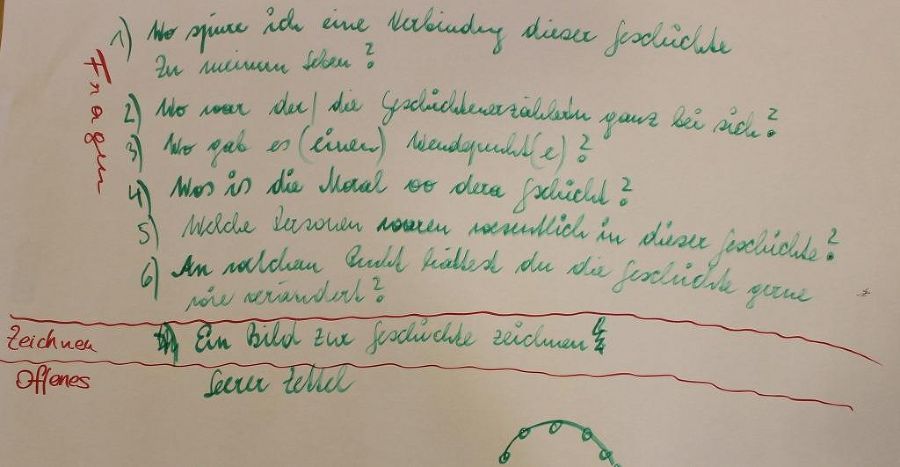 Fragen
1) Wo spüre ich eine Verbindung dieser Geschichte
zu meinem Leben?
2) Wo war der/die GeschichtenerzählerIn ganz bei sich?
3) Wo gab es (einen) Wendepunkt(e)?
4) Wos is die Moral oo dera Gschicht?
5) Welche Personen waren wesentlich in dieser Geschichte?
6) An welchem Punkt hättest du die Geschichte gerne
verändert?
Zeichnen Ein Bild zur Geschichte zeichnen
Offenes Leerer Zettel